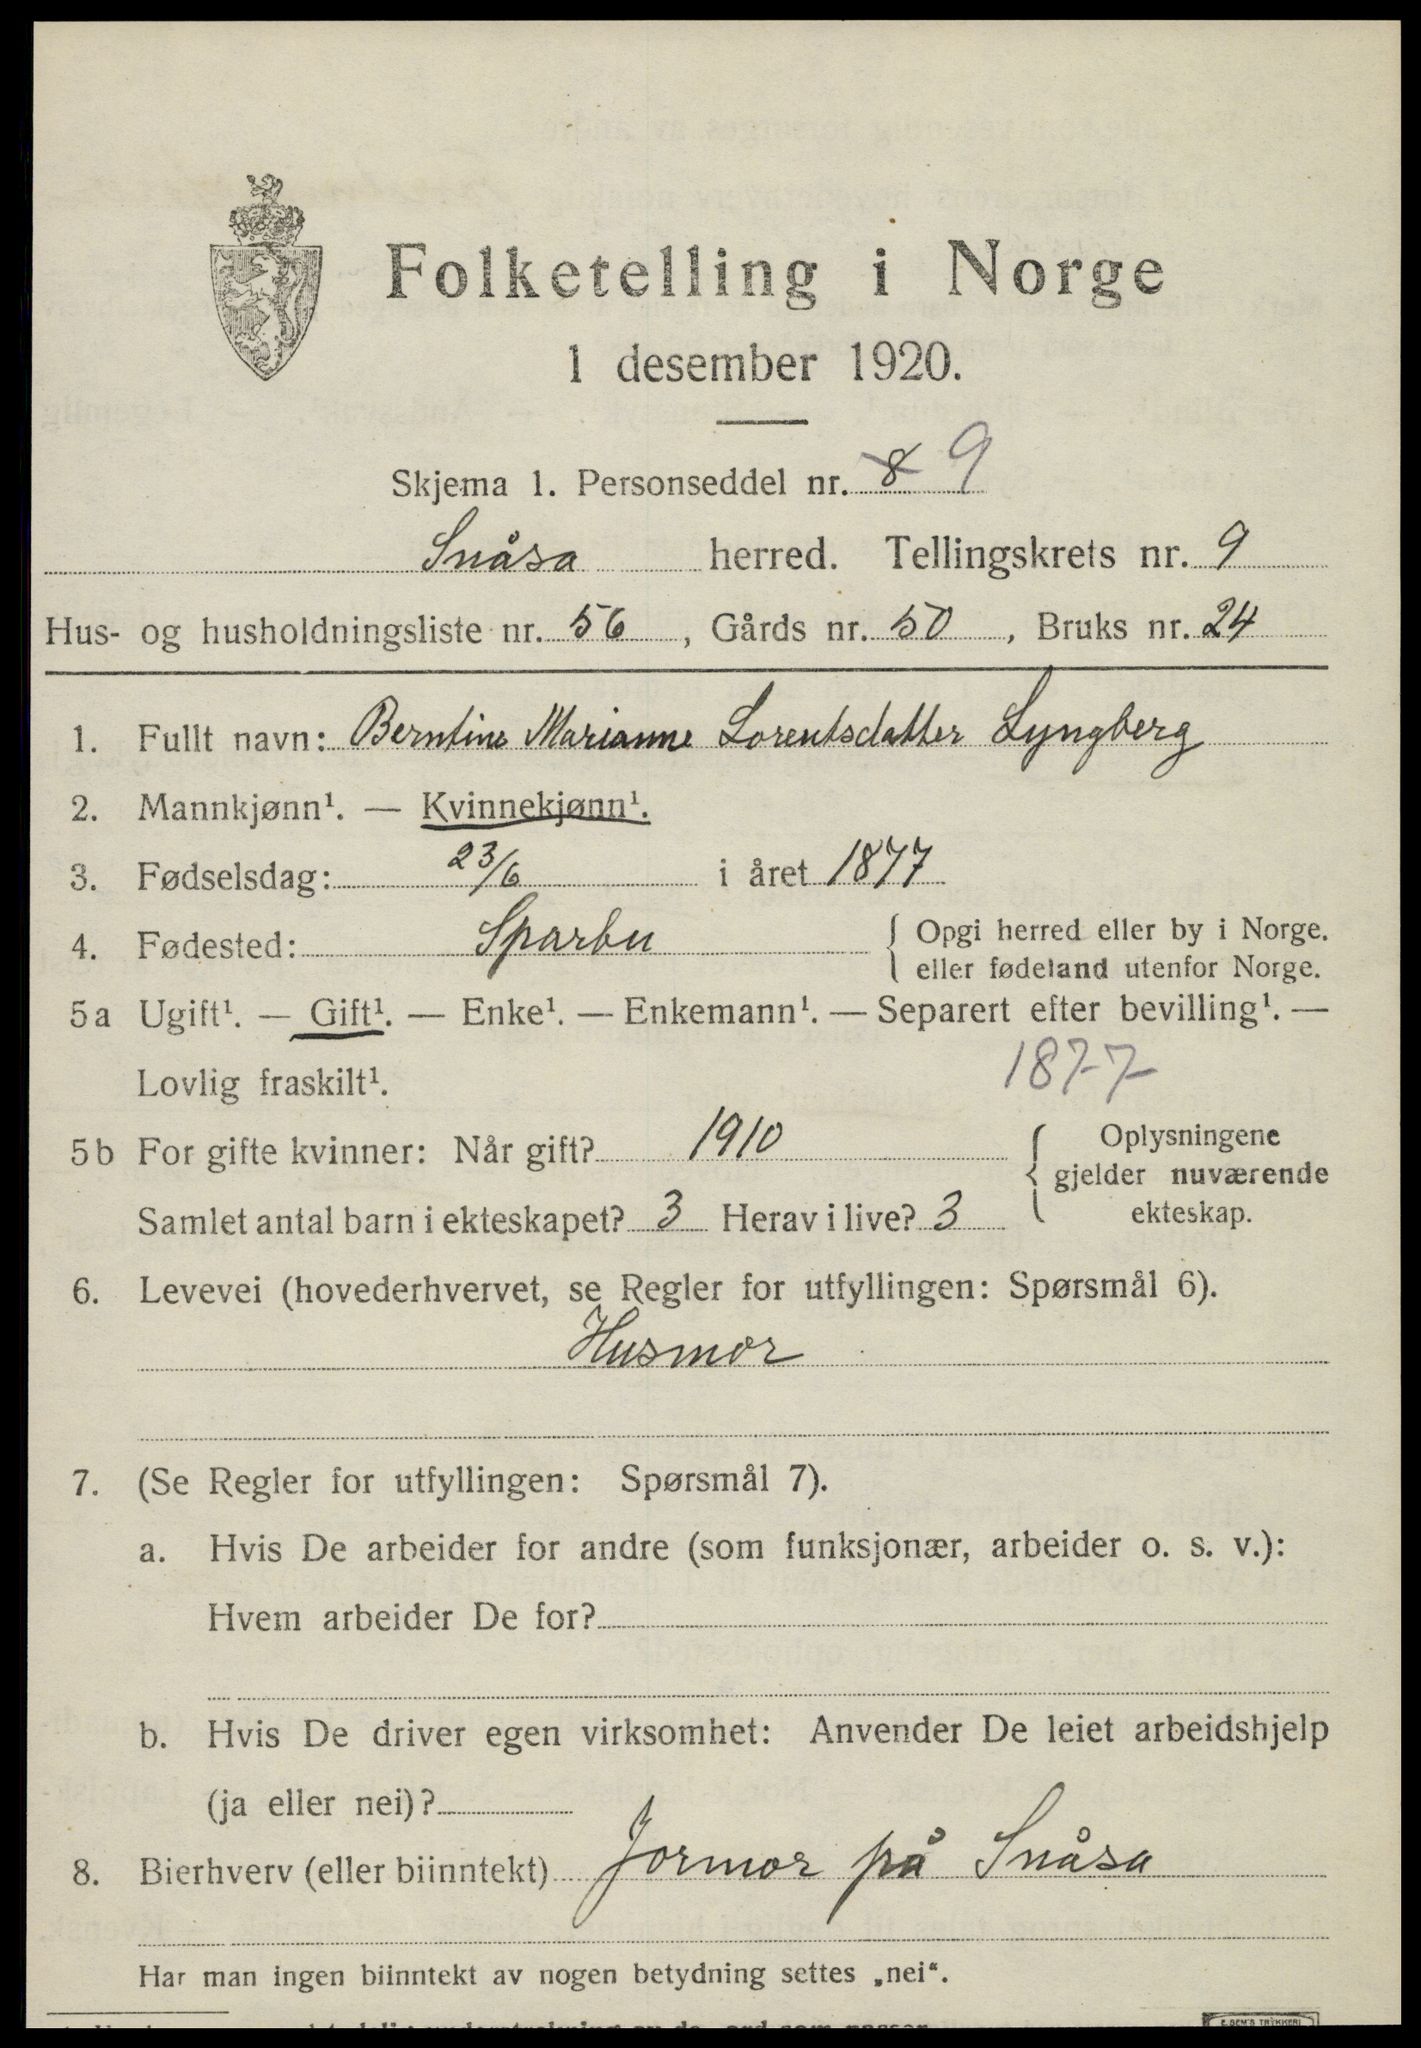 Folketelling i Norge
1 desember 1920.
Skjema 1. Personseddel nr. 8 9
Snåsa herred. Tellingskrets nr. 9
Hus- og husholdningsliste nr. 56, Gårds nr. 50, Bruks nr. 24
1. Fullt navn: Berntine Marianne Lorentsdatter Lyngberg
2. Mannkjønn¹. — Kvinnekjønn¹.
3. Fødselsdag: 23/6 i året 1877
4. Fødested: Sparbu { Opgi herred eller by i Norge.
eller fødeland utenfor Norge.
5a Ugift¹. — Gift¹. — Enke¹. — Enkemann¹. — Separert efter bevilling¹. —
Lovlig fraskilt¹. 1877
5b For gifte kvinner: Når gift? 1910 { Oplysningene
gjelder nuværende
Samlet antal barn i ekteskapet? 3 Herav i live? 3 ekteskap.
6. Levevei (hovederhvervet, se Regler for utfyllingen: Spørsmål 6).
Husmor
7. (Se Regler for utfyllingen: Spørsmål 7).
a. Hvis De arbeider for andre (som funksjonær, arbeider o. s. v.):
Hvem arbeider De for?
b. Hvis De driver egen virksomhet: Anvender De leiet arbeidshjelp
(ja eller nei)?
8. Bierhverv (eller biinntekt) Jormor på Snåsa
Har man ingen biinntekt av nogen betydning settes „nei“.